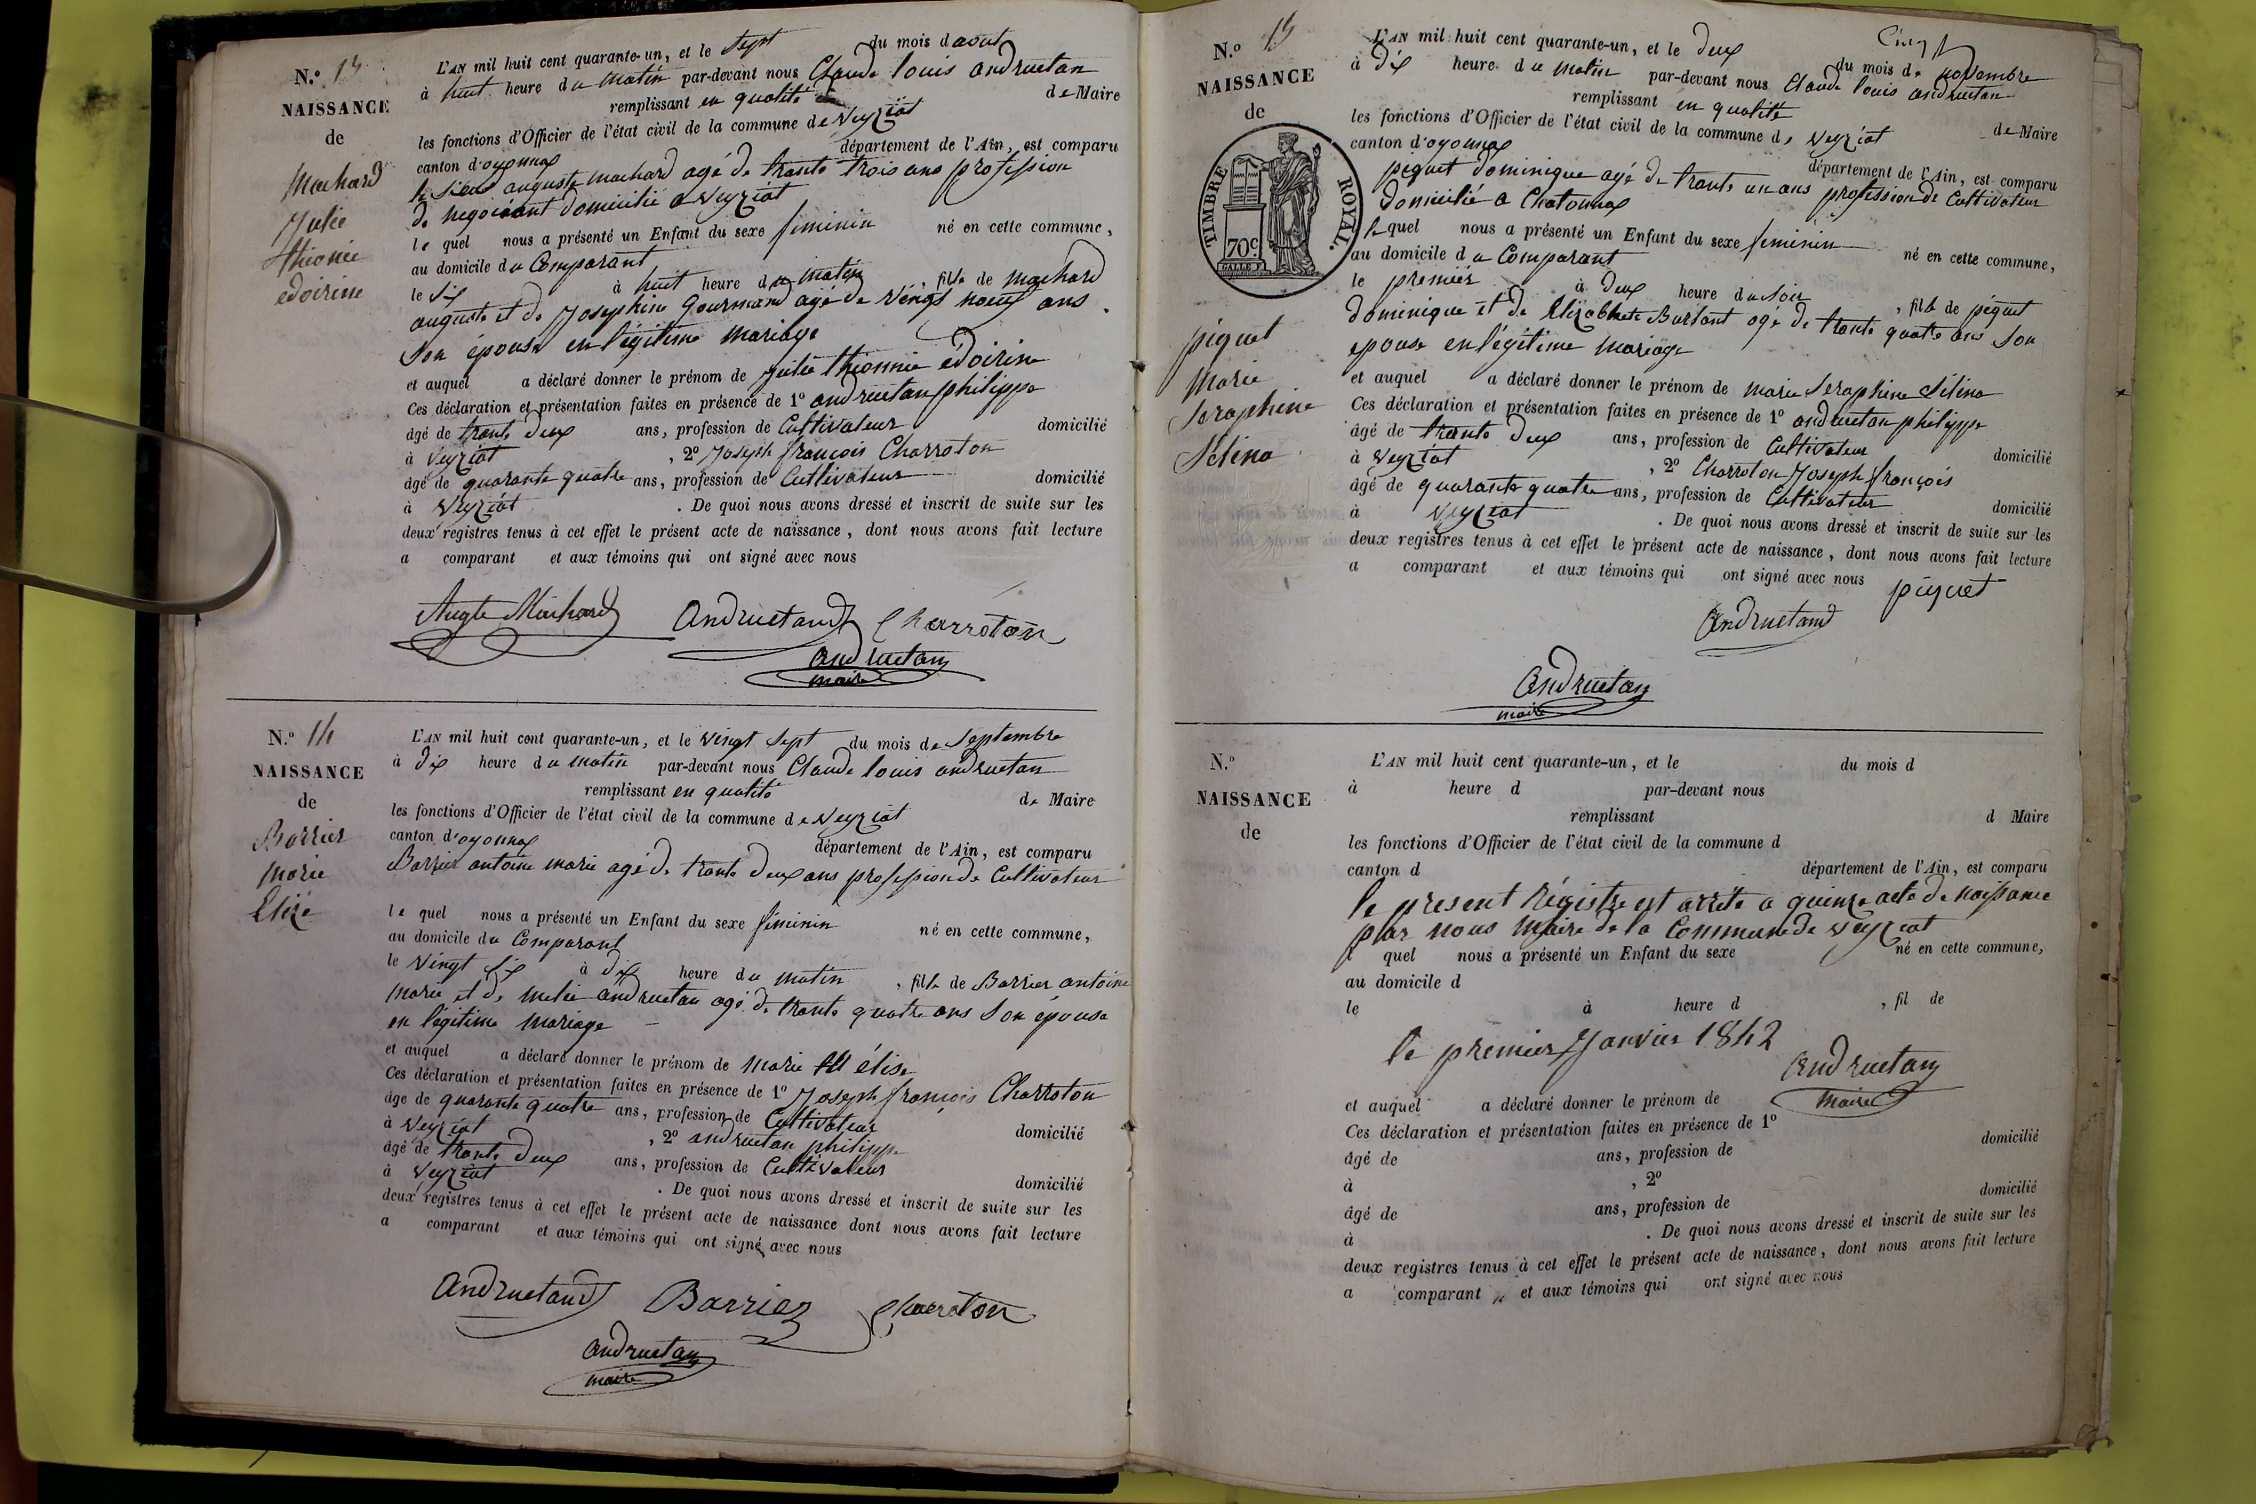 N.° 13
NAISSANCE
de
Machard
Julie
thionie
édoirine
L'AN mil huit cent quarante-un, et le Sept du mois d aout
à huit heure du matin par-devant nous Claude louis andruetan
remplissant en qualité de Maire
les fonctions d'Officier de l'état civil de la commune de Veyziat
canton d'oyonnax département de l'Ain, est comparu
le Sieur auguste machard agé de trante trois ans profession
de negociant domicilié a Veyziat
le quel nous a présenté un Enfant du sexe feminin né en cette commune,
au domicile du Comparant
le Six à huit heure du matin, fille de machard
auguste et de Josephine Gourmand agé de vingt neuf ans
Son épouse en légitime mariage
et auquel a déclaré donner le prénom de Julie thionnie édoirine
Ces déclaration et présentation faites en présence de 1° andruetan philippe
âgé de trante deux ans, profession de Cultivateur domicilié
à Veyziat, 2° Joseph françois Charroton
âgé de quarante quatre ans, profession de Cultivateur domicilié
à Veyziat. De quoi nous avons dressé et inscrit de suite sur les
deux registres tenus à cet effet le présent acte de naissance, dont nous avons fait lecture
a comparant et aux témoins qui ont signé avec nous
Augte Machard Andruetand Charroton
andruetan
maire
N.° 14
NAISSANCE
de
Barrier
marie
Elize
L'AN mil huit cent quarante-un, et le Vingt Sept du mois de Septembre
à dix heure du matin par-devant nous Claude louis andruetan
remplissant en qualité de Maire
les fonctions d'Officier de l'état civil de la commune de Veyziat
canton d'oyonnax département de l'Ain, est comparu
Barrier antoine marie agé de trante deux ans profession de Cultivateur
le quel nous a présenté un Enfant du sexe féminin né en cette commune,
au domicile du Comparant
le Vingt Six à dix heure du matin, fille de Barrier antoine
marie et de andruetan agé de trante quatre ans Son épouse
en légitime mariage
et auquel a déclaré donner le prénom de marie élise
Ces déclaration et présentation faites en présence de 1° Joseph françois Charroton
âge de quarante quatre ans, profession de Cultivateur domicilié
à Veyziat, 2° andruetan philippe
âgé de trante deux ans, profession de Cultivateur domicilié
à Veyziat. De quoi nous avons dressé et inscrit de suite sur les
deux registres tenus à cet effet le présent acte de naissance dont nous avons fait lecture
a comparant et aux témoins qui ont signé avec nous
Andruetand Barrier Charroton
andruetan
maire
N.° 15
NAISSANCE
de
TIMBRE ROYAL.
70c.
piquet
marie
Seraphine
Sélina
Cinq
L'AN mil huit cent quarante-un, et le deux du mois de novembre
à dix heure du matin par-devant nous Claude louis andruetan
remplissant en qualité de Maire
les fonctions d'Officier de l'état civil de la commune de Veyziat
canton d'oyonnax département de l'Ain, est comparu
piquet dominique agé de trante un ans profession de Cultivateur
domicilié a Chatonnax
le quel nous a présenté un Enfant du sexe feminin né en cette commune,
au domicile du Comparant
le premier à deux heure du Soir, fille de piquet
dominique et de Elizabhete agé de trante quatre ans Son
epouse en légitime mariage
et auquel a déclaré donner le prénom de marie Seraphine Sélina
Ces déclaration et présentation faites en présence de 1° andruetan philippe
âgé de trante deux ans, profession de Cultivateur domicilié
à Veyziat, 2° Charroton Joseph françois
âgé de quarante quatre ans, profession de Cultivateur domicilié
à Veyziat. De quoi nous avons dressé et inscrit de suite sur les
deux registres tenus à cet effet le présent acte de naissance, dont nous avons fait lecture
a comparant et aux témoins qui ont signé avec nous piquet
Andruetand
andruetan
maire
N.°
NAISSANCE
de
L'AN mil huit cent quarante-un, et le du mois d
à heure d par-devant nous
remplissant d Maire
les fonctions d'Officier de l'état civil de la commune d
canton d département de l'Ain, est comparu
le present régistre est arrété a quinze acte de naissance
par nous Maire de la Commune de Veyziat
l quel nous a présenté un Enfant du sexe né en cette commune,
au domicile d
le à heure d, fil de
le premier Janvier 1842
andruetan
maire
et auquel a déclaré donner le prénom de
Ces déclaration et présentation faites en présence de 1°
âgé de ans, profession de domicilié
à, 2°
âgé de ans, profession de domicilié
à. De quoi nous avons dressé et inscrit de suite sur les
deux registres tenus à cet effet le présent acte de naissance, dont nous avons fait lecture
a comparant et aux témoins qui ont signé avec nous